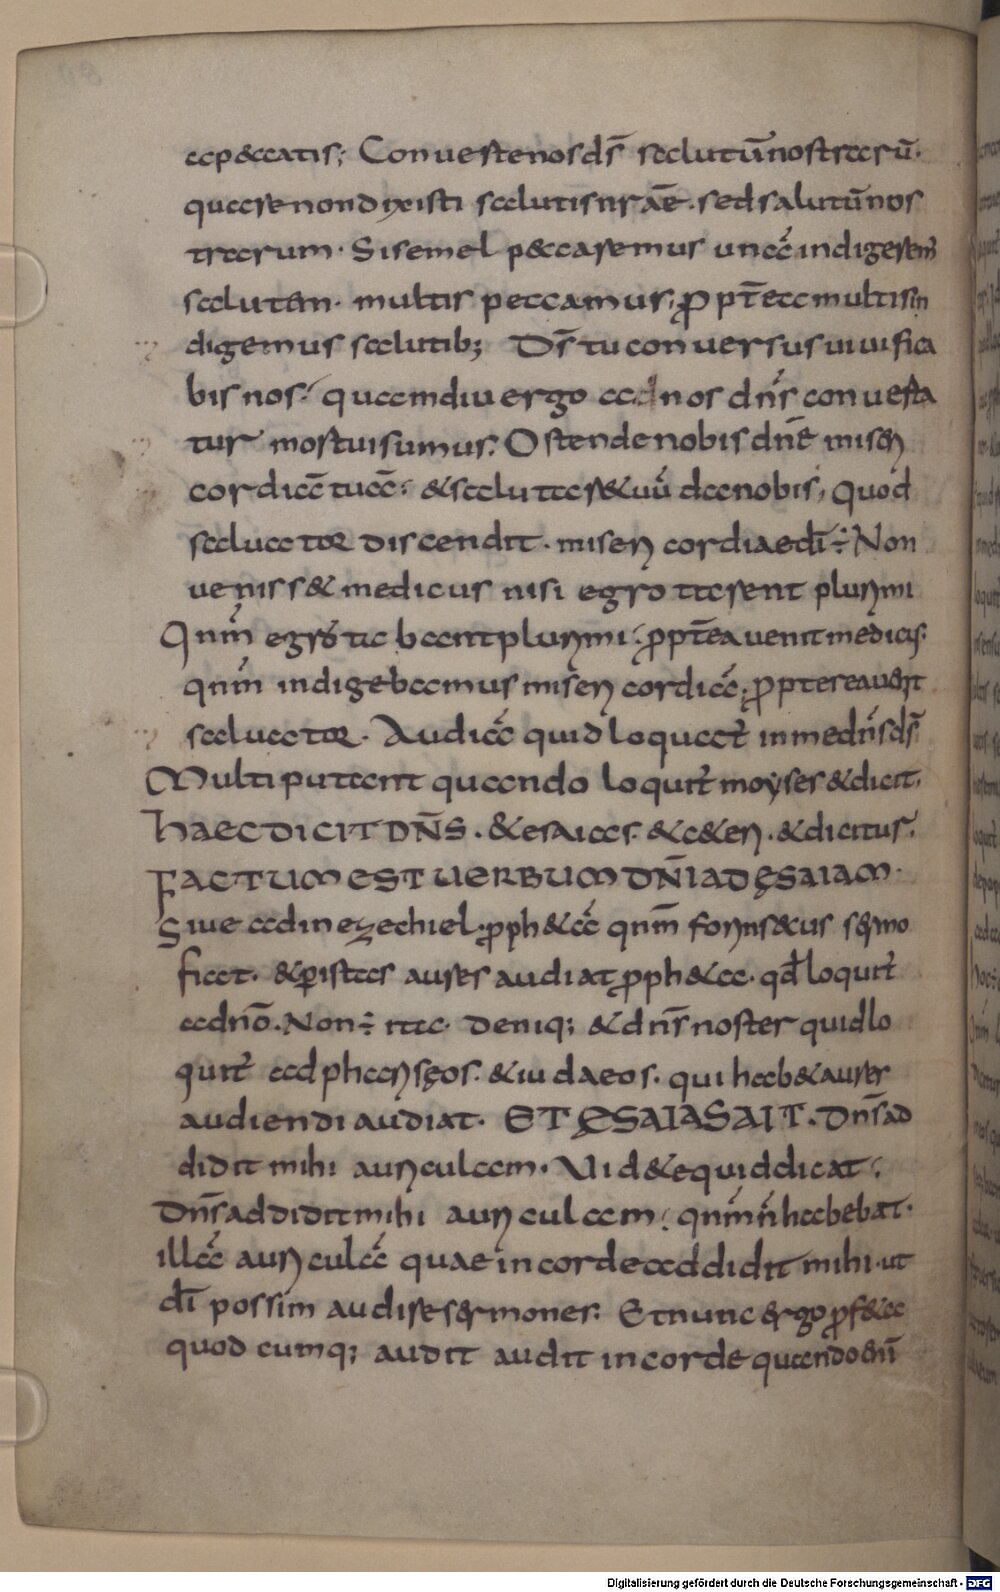 ap&catis; Conuertenosds̄ salutūnostrarū.
quarenondixisti salutisnrāe. sedsalutūnos
trarum. Sisemel p&caremus unā indigerem̄
salutem. multis peccamus; ꝓpt̄eamultisin
digemus salutib; Ds̄ tuconuersusuiuifica
bisnos. quamdiuergo adnos dn̄s conuerta
tur mortuisumus. Ostendenobisdnē miseri
cordiātuā. &salutar&uū danobis, Quod
saluator discendit. misericordiaedī ÷ Non
ueniss& medicus nisi egrotarent plurimi
Qnm̄ egrotabantplurimi. ꝓpt̄eauenitmedicus.
qnm̄ indigebamusmisericordiā; ꝓptereauenit
saluator. Audiā quidloquat̄ inmednsds̄
Multiputant quando loquit̄ moyses&dicit.
HAECDICITDN̄S. &esaias. &c&eri. &dicitur.
FACTUMESTUERBUMDN̄IADĘSAIAM.
Siue adinezechiel. ꝓph&ā qnm̄ forins&us sermo
fiat. &ꝑistas aures audiatꝓph&a. qd̄loquit̄
adnō. Non÷ita. Deniq; &dn̄snoster quidlo
quit̄ adpharisęos. &iudaeos. quihab&aures
audiendiaudiat. ETĘSAIASAIT. Dn̄sad
didit mihi auriculam. Uid&equiddicat.
Dn̄saddiditmihi auriculam. qnm̄n̄habebat.
illā auriculā quaeincordeaddidit mihi. ut
dī possim audiresermones. Etnunc ergoꝓf&a
quodcumq; audit audit incorde quandoenī
Digitalisierung gefördert durch die Deutsche Forschungsgemeinschaft - DFG